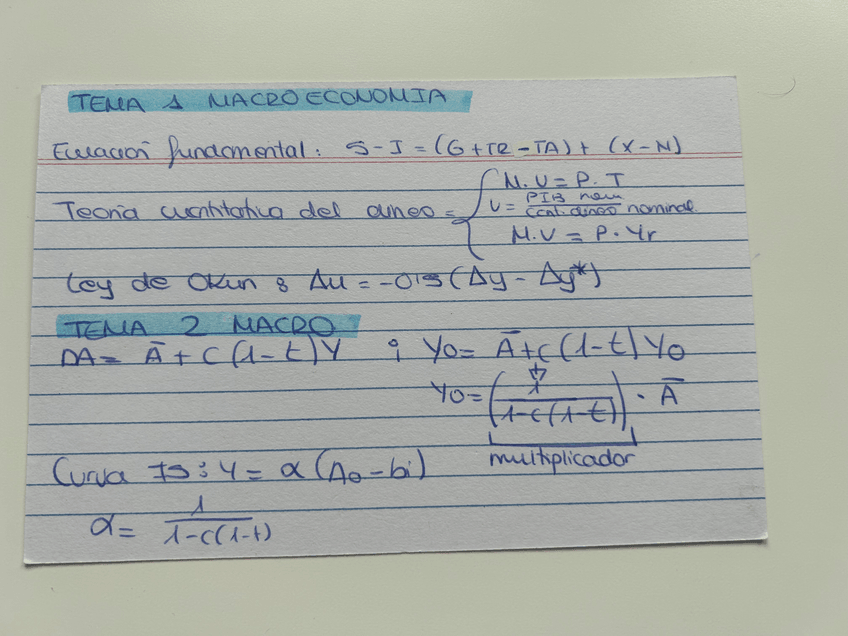 TEMA 1 MACROECONOMIA
Ecuación fundamental: S-I = (G+TR-TA) + (X-N)
Teoria cuantitativa del dineo = { M.V = P.T
V = PIB nom / cant.dineo nominal.
M.V = P.Yr
Ley de Okun: Δu = -0'5 (Δy - Δy*)
TEMA 2 MACRO
DA = Ā + C (1-t) Y ; Y0 = Ā + C (1-t) Y0
Y0 = (1 / 1-c(1-t)) · Ā
multiplicador
Curva IS: Y = α (A0 - bi)
α = 1 / 1-c(1-t)